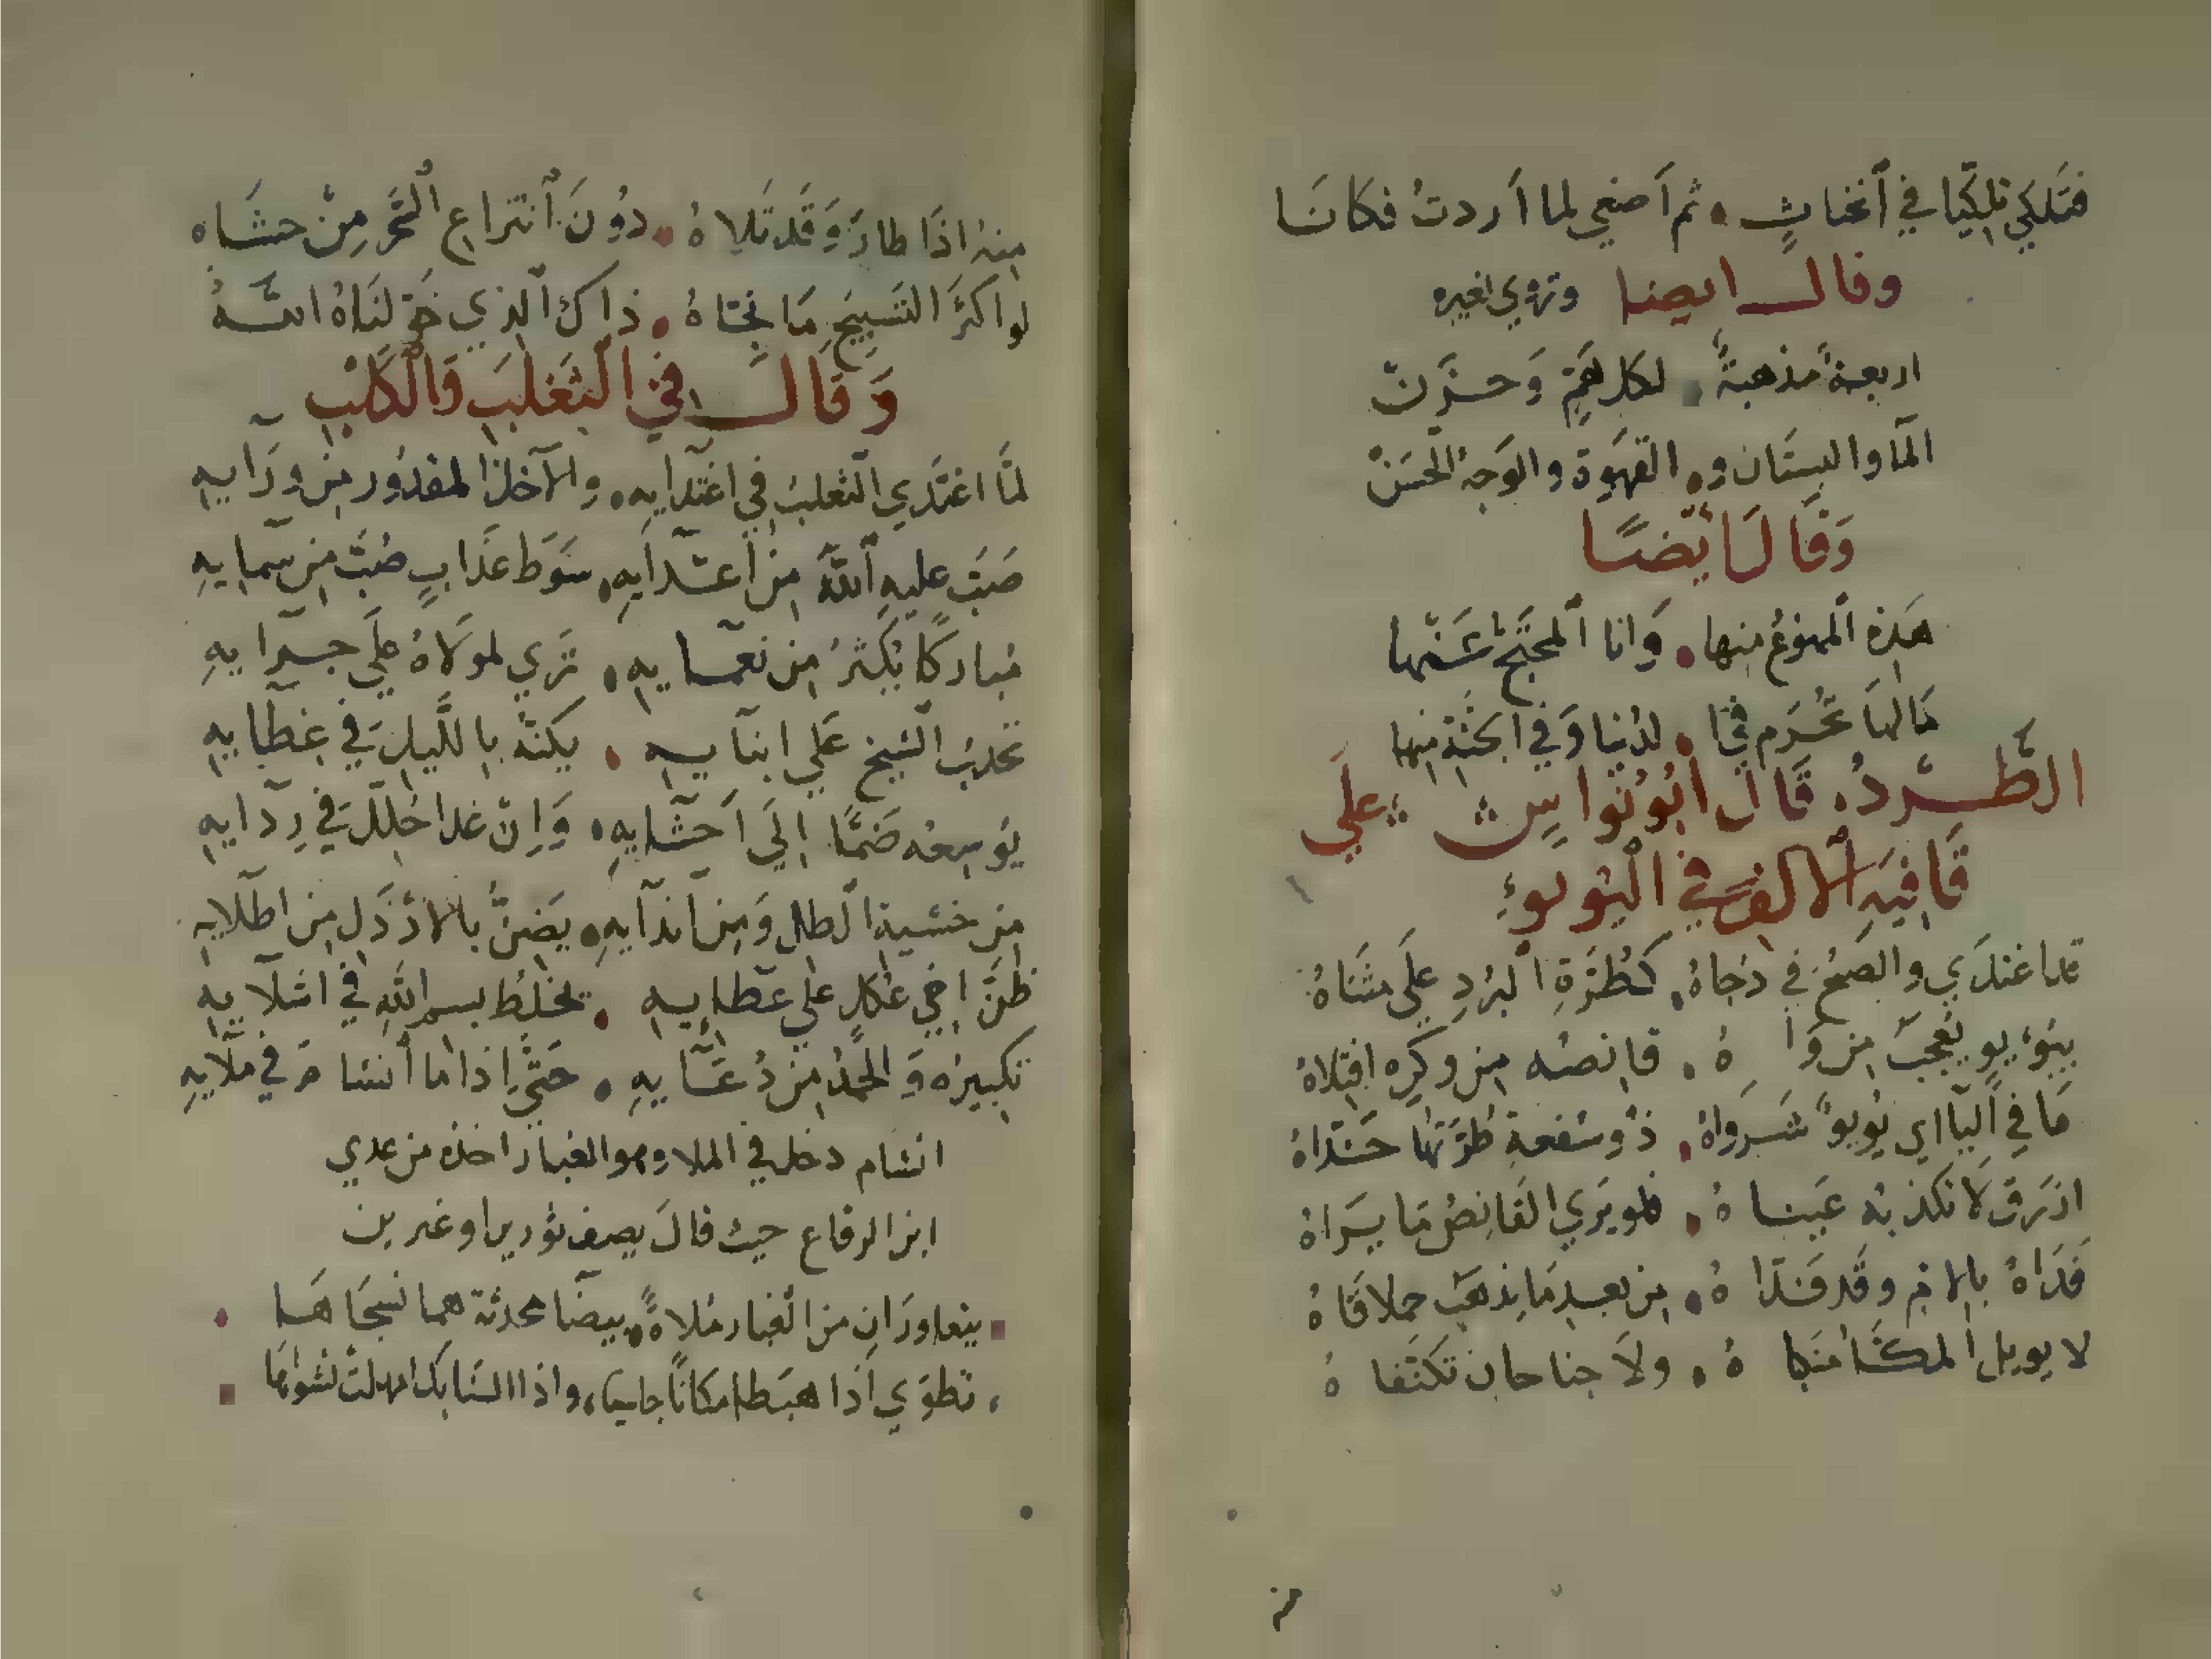 فتلكي تلكيا في أنخناثٍ ۰ ثم أصغي لما أردتُ فكانَا
وقال ايضا وتروي لغيره
اربعة مذهبةٌ ۰ لكل همٍّ وَحزَنْ
المآ والبستَان و۰ القهوة والوَجهُ الحسَنْ
وَقَالَ أيْضًا
هَذِهِ الممنوعُ منها ۰ وَانا المحتجّ عَنْها
مَالهَا تُحْرَم في ۰ لدُنيا وَفي الجنّة منها
الطَّرْدُ ۰ قَال أبُو نُوَاسٍ علَي
قَافيَة الألف في اليُؤيُؤِ
قد اغتدَي والصبحُ في دُجاهُ ۰ كَطُرّةِ البُردِ علَى مثنَاهُ
بيُؤيؤٍ يُعجبُ من رَآهُ ۰ قانصُه من وكرِه افتلاهُ
مَا في اليَآاي يُويوٌ شَروَاهُ ۰ ذُو سُفعةٍ طُرّتهَا خَدّاهُ
ازرَق لَا تكذبُه عَينا هُ ۰ فلو يَري القَانِصُ مَا يَراهُ
فَدَاهُ بالام وقَد فَدّا هُ ۰ من بعد مَا يذهَب حملاقَا هُ
لا يويل المكّا منكبا هُ ۰ ولَا جناحان تكنّفا هُ
منهُ اذَا طارَ وَقَد تَلاهُ ۰ دُونَ انتزاعِ السَّحرِ مِنْ حشَاه
لو اكثرَ التسبيحَ مَا نجّاهُ ۰ ذاك الذِي خَوّلنَاهُ اللهُ
وَقَالَ في الثَعْلبِ وَالكَلْبِ
لمَّا اغتَدَي الثعلبُ في اغتدَايهِ ۰ والاخذ المقدُور من ورَآيهِ
صَبّ عليهِ اللهُ من اعدَايهِ ۰ سَوَط عَذابٍ صُبَّ من سمايهِ
مُباركًا يكثرُ من نعمايهِ ۰ تَري لمولَاهُ علَي جِرَايهِ
تحدبُ الشيخ عَلي ابنَايهِ ۰ يكنّه بالليلِ في غِطآيهِ
يوسعُه ضَمًّا الَي احْشآيهِ ۰ وَاِنْ غدا جُلِّلَ في رِدآيهِ
من خشية الطلِ وَمن اندآيهِ ۰ يَضِنُّ بالارْذَلِ من اطلايهِ
ظنَّ اخي عُكلٍ علَي عطايهِ ۰ يخلطُ بسم اللهِ في اشلايهِ
تكبيرُه وَالحمدُ من دُعآيهِ ۰ حَتَّى اِذا ما أنشا مَ في ملآيهِ
انشام دخل في الملا وهو الغبار اخذه من عدي
ابن الرقاع حيث قالَ يصف ثورين او عيرين
يتعاورَانِ من الغبار مُلاةً ۰ بيضَآ محدثة هما نسجَاهَا
تطوَي اذا هبَطا مكانًا جاسيا، واذا السَّنابك اسهلت نشراهَا
من